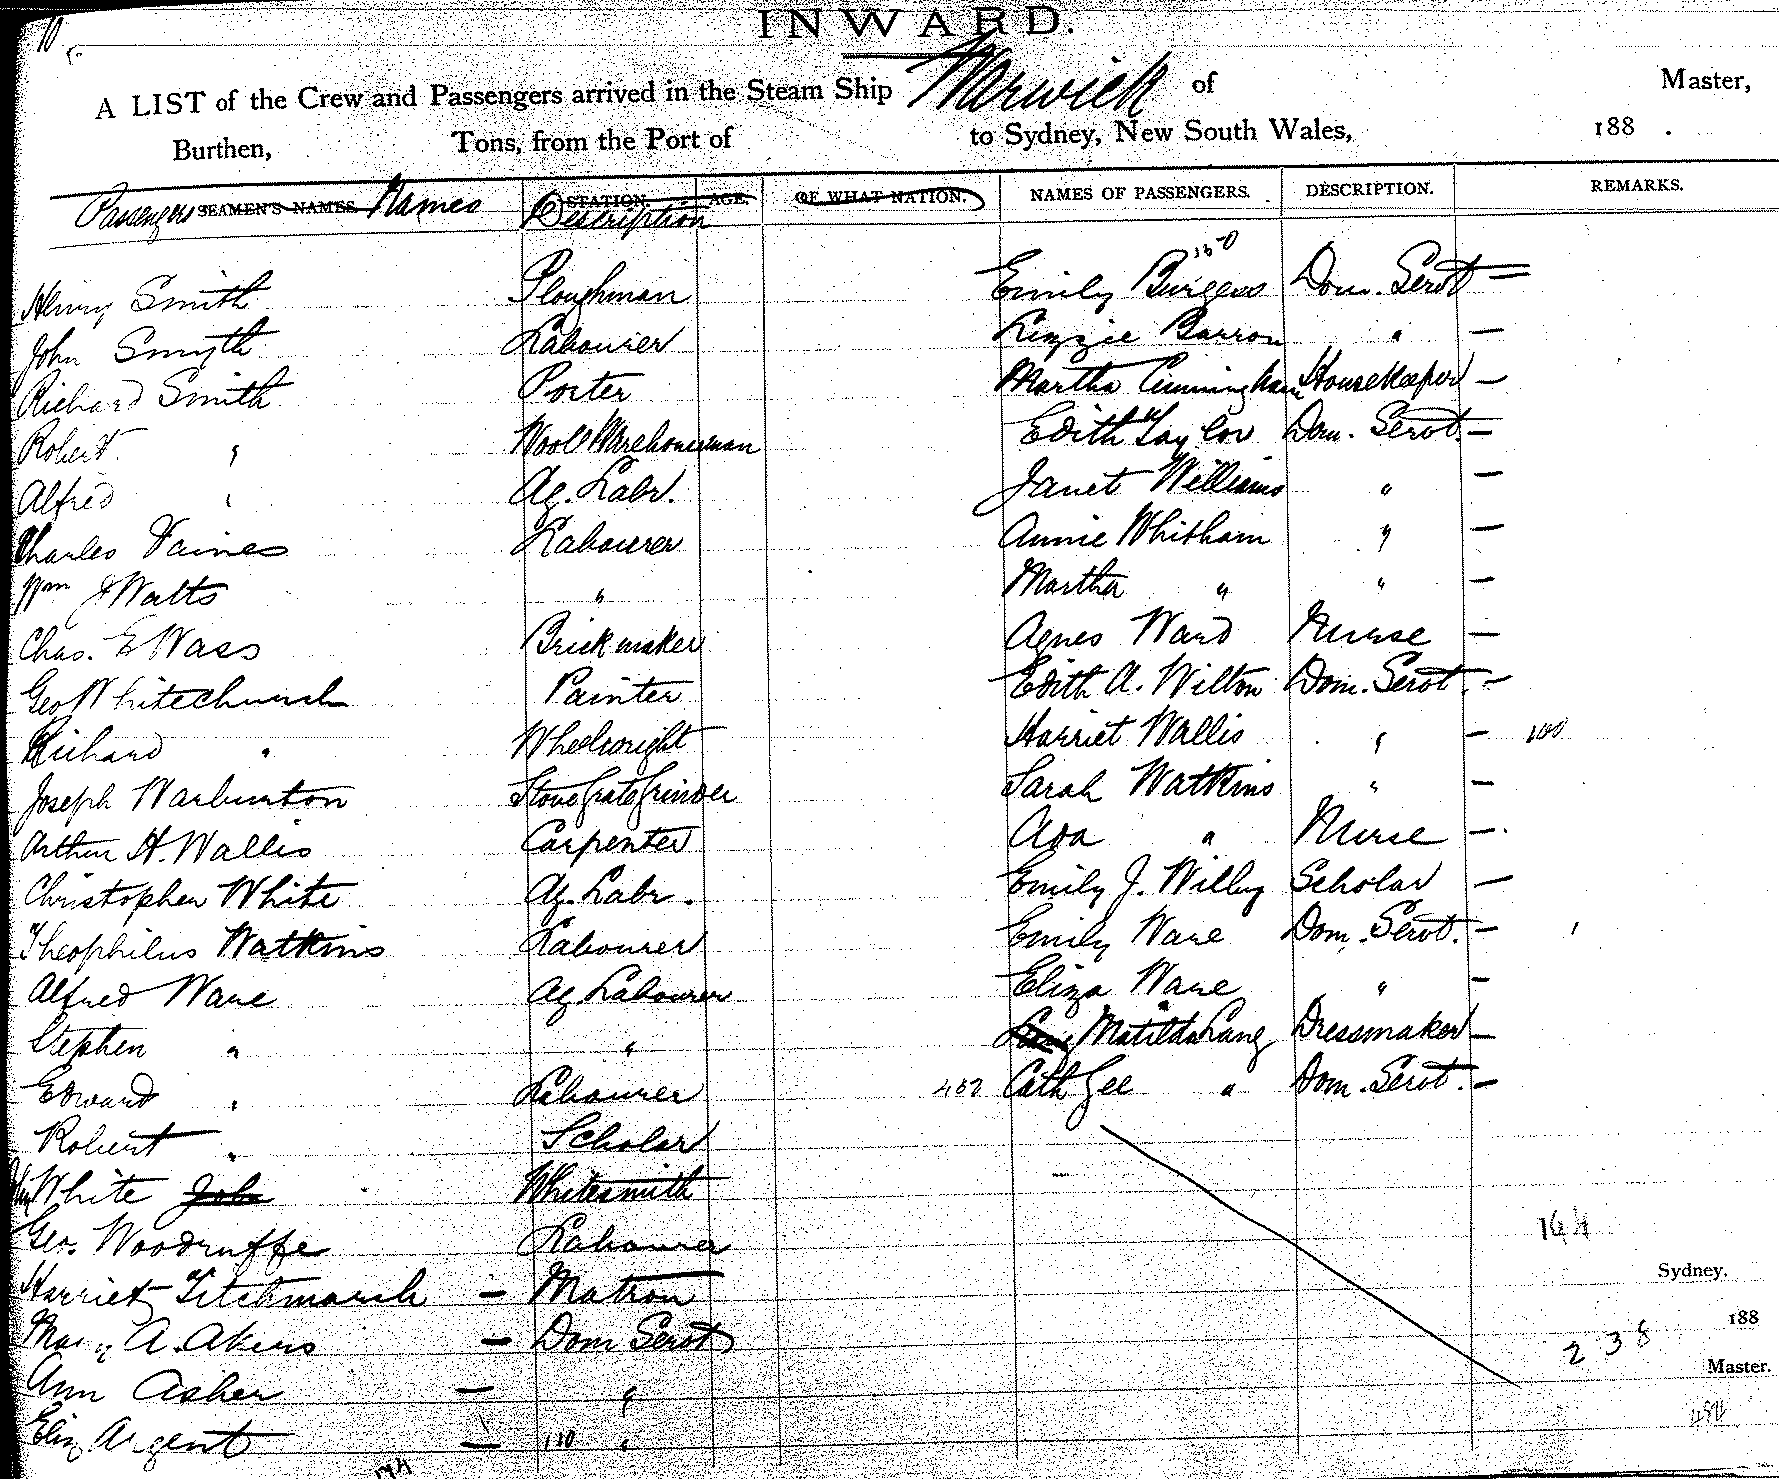 10
INWARD.
A LIST of the Crew and Passengers arrived in the Steam Ship Warwick of Master,
Burthen, Tons, from the Port of to Sydney, New South Wales, 188 .
Passengers SEAMEN'S NAMES. Names STATION. Description AGE. OF WHAT NATION. NAMES OF PASSENGERS. DESCRIPTION. REMARKS.
Henry Smith Ploughman
John Smyth Labourer
Richard Smith Porter
Robert " Wool Warehouseman
Alfred " Ag. Labr.
Charles Vaines Labourer
Wm J Watts "
Chas. E Wass Brickmaker
Geo Whitechurch Painter
Richard " Wheelwright
Joseph Warburton Stove Grate Grinder
Arthur H. Wallis Carpenter
Christopher White Ag. Labr.
Theophilus Watkins Labourer
Alfred Ware Ag Labourer
Stephen " "
Edward " Labourer
Robert " Scholar
White John Whitesmith
Geo. Woodruffe Labourer
Harriet Titchmarsh — Matron
Mary A. Akers — Dom Servt
Ann Asher — "
Eliz Argent — 110 "
Emily Burgess Dom. Servt —
Lizzie Barron " —
Martha Cunningham Housekeeper —
Edith Taylor Dom. Servt. —
Janet Williams " —
Annie Whitham " —
Martha " " —
Agnes Ward Nurse —
Edith A. Wilton Dom. Servt. —
Harriet Wallis " —
Sarah Watkins " —
Ada " Nurse —
Emily J. Willy Scholar —
Emily Ware Dom. Servt. —
Eliza Ware " —
Matilda Lang Dressmaker —
402 Cath Gee " Dom. Servt. —
144
Sydney.
188
238
Master.